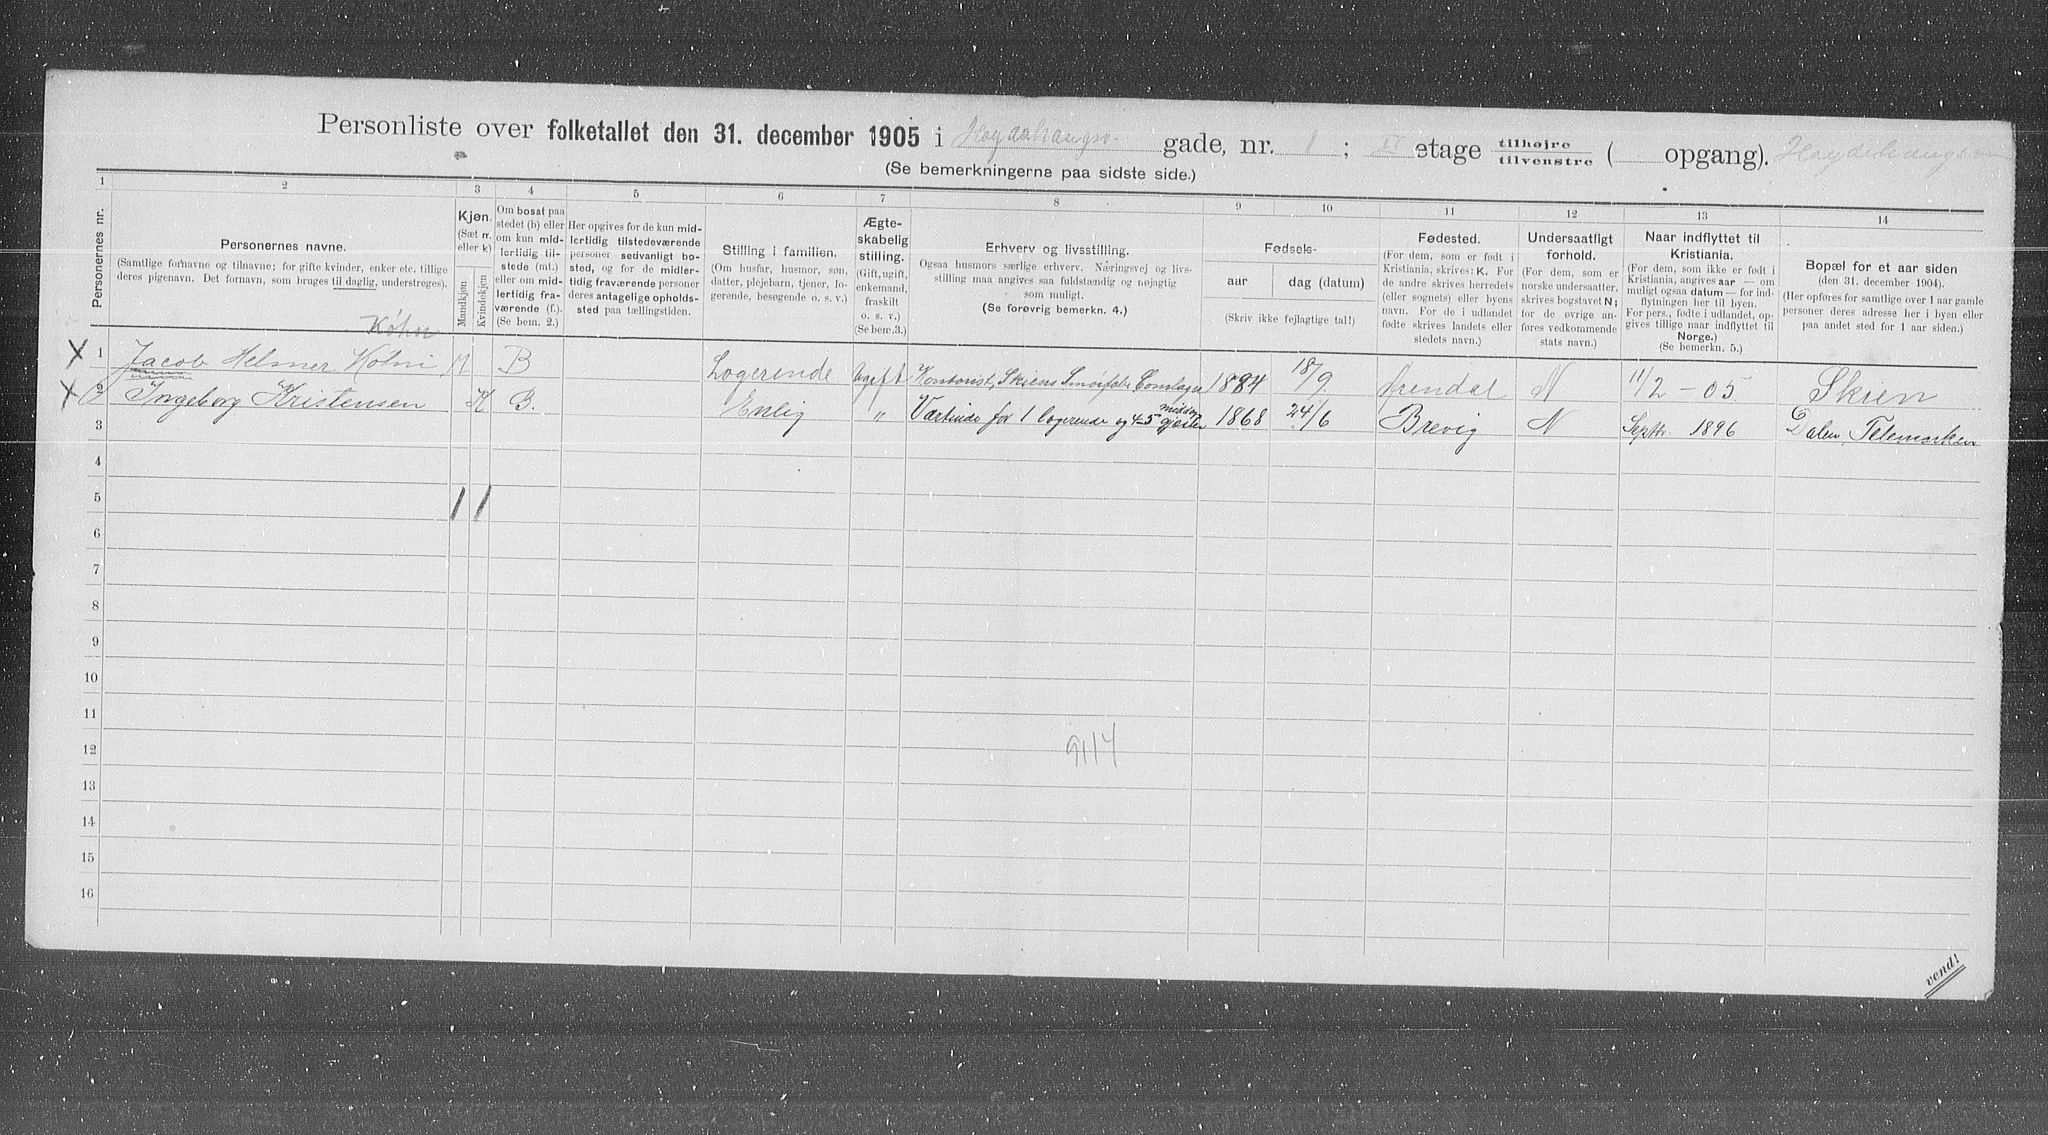 Personliste over folketallet den 31. december 1905 i Høydahaugsv. gade, nr. 1; IV etage tilhøjre / tilvenstre ( opgang).
(Se bemerkningerne paa sidste side.)
1 2 3 4 5 6 7 8 9 10 11 12 13 14
Personernes nr.
Personernes navne.
(Samtlige fornavne og tilnavne; for gifte kvinder, enker etc. tillige
deres pigenavn. Det fornavn, som bruges til daglig, understreges).
Kjøn.
(Sæt m.
eller k)
Mandkjøn
Kvindekjøn
Om bosat paa
stedet (b) eller
om kun mid-
lertidig til-
stede (mt.)
eller om mid-
lertidig fra-
værende (f.).
(Se bem. 2.)
Her opgives for de kun mid-
lertidig tilstedeværende
personer sedvanligt bo-
sted, og for de midler-
tidig fraværende personer
deres antagelige opholds-
sted paa tællingstiden.
Stilling i familien.
(Om husfar, husmor, søn,
datter, plejebarn, tjener, lo-
gerende, besøgende o. s. v.)
Ægte-
skabelig
stilling.
(Gift, ugift,
enkemand,
fraskilt
o. s. v.)
(Se bem.3.)
Erhverv og livsstilling.
Ogsaa husmors særlige erhverv. Næringsvej og livs-
stilling maa angives saa fuldstændig og nøjagtig
som muligt.
(Se forøvrig bemerkn. 4.)
Fødsels-
aar
dag (datum)
(Skriv ikke fejlagtige tal!)
Fødested.
(For dem, som er født i
Kristiania, skrives: K. For
de andre skrives herredets
(eller sognets) eller byens
navn. For de i udlandet
fødte skrives landets eller
stedets navn.)
Undersaatligt
forhold.
(For dem, som er
norske undersaatter,
skrives bogstavet N;
for de øvrige an-
føres vedkommende
stats navn.)
Naar indflyttet til
Kristiania.
(For dem, som ikke er født i
Kristiania, angives aar — om
muligt ogsaa datum — for ind-
flytningen her til byen.
For pers., fødte i udlandet, op-
gives tillige naar indflyttet til
Norge.)
(Se bemerkn. 5.)
Bopæl for et aar siden
(den 31. december 1904).
(Her opføres for samtlige over 1 aar gamle
personer deres adresse her i byen eller
paa andet sted for 1 aar siden.)
Køhn
X 1 Jacob Helmer Kohn M B Logerende Ugift Kontorist, Skiens 1884 18/9 Arendal N 11/2 – 05 Skien
X 2 Ingeborg Kristensen K B. Enlig " Værtinde for 1 logerende og 4-5 middag gjester 1868 24/6 Brevig N Septbr. 1896 Dalen, Telemarken
3
4
5 1 1
6
7
8
9
10
11
12 9114
13
14
15
16
vend!